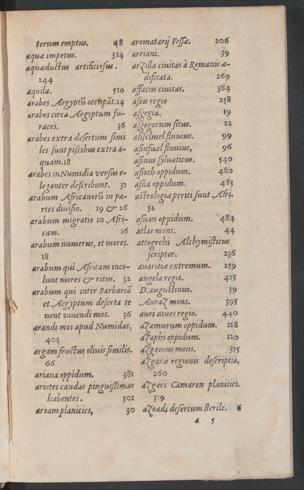 torum emptus. 48
aquæ impetus. 314
aquæductus artificiosus.
244
aquila. 510
arabes Ægyptũ occupãt. 14
arabes circa Ægyptum fu-
races. 36
arabes extra desertum simi
les sunt piscibus extra a-
quam. 18
arabes in Numidia versus e-
leganter describunt. 32
arabum Africanorũ in pa-
rtes diuisio. 19 & 26
arabum migratio in Afri-
cam. 16
arabum numerus, et mores.
18
arabum qui Africam inco-
lunt mores & ritus. 32
arabum qui inter Barbariã
et Ægyptum deserta te
nent viuendi mos. 36
arandi mos apud Numidas.
403
argam fructus oliuis similis.
66
ariana oppidum. 381
arietes caudas pinguissimas
habentes. 501
aroam planicies, 30
aromatarij Fessæ. 206
arriani. 39
arzilla ciuitas à Romanis æ-
dificata. 269
assacus ciuitas. 384
aseu regio 258
asgegia. 19
asgegorum situs. 22
asiselmel fluuius. 99
asifnual fluuius, 96
asinus syluaticus. 540
asioth oppidum. 480
asna oppidum. 483
astrologiæ periti sunt Afri.
52
asuan oppidum. 484
atlas mons. 44
attogrehi Alchymisticus
scriptor. 236
auaritia extremum. 259
augela regio. 425
D. augustinus. 39
Auraz mons. 395
aurei diues regio. 440
azamurum oppidum. 128
azaphi oppidum. 120
azgannis mons. 315
azgaræ regionis descriptio,
260
azgari Camaren planicies.
319
azoads desertum sterile. 6
6 5